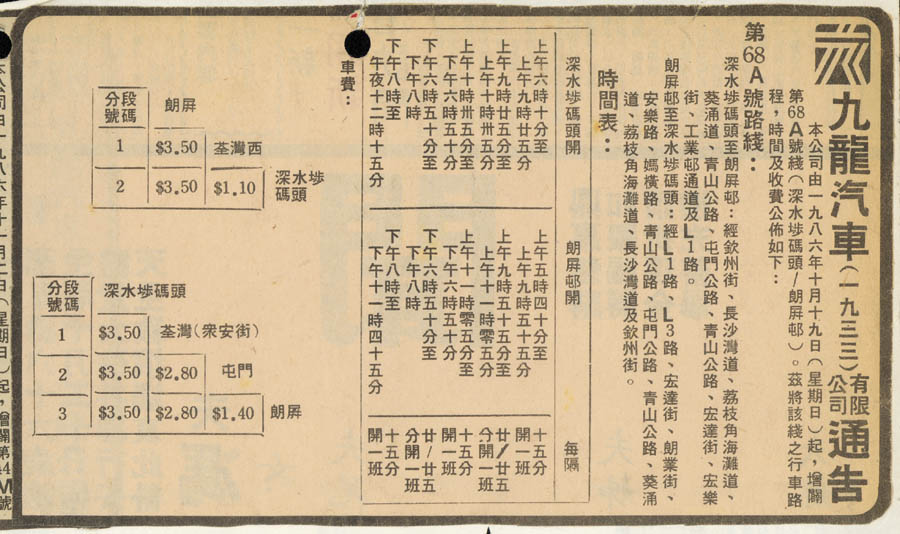 九龍汽車(一九三三)有限公司通告
本公司由一九八六年十月十九日(星期日)起,增闢
第68A號綫(深水埗碼頭/朗屏邨)。茲將該綫之行車路
程,時間及收費公佈如下:
第68A號路綫:
深水埗碼頭至朗屏邨:經欽州街、長沙灣道、荔枝角海灘道、
葵涌道、青山公路、屯門公路、青山公路、宏達街、宏樂
街、工業邨通道及L1路。
朗屏邨至深水埗碼頭:經L1路、L3路、宏達街、朗業街、
安樂路、媽橫路、青山公路、屯門公路、青山公路、葵涌
道、荔枝角海灘道、長沙灣道及欽州街。
時間表:
深水埗碼頭開 朗屏邨開 每隔
上午六時十分至 上午五時四十分至 十五分
上午九時廿五分 上午九時五十五分 開一班
上午九時廿五分至 上午九時五十五分至 廿/廿五
上午十時卅五分 上午十一時零五分 分開一班
上午十時卅五分至 上午十一時零五分至 十五分
下午六時五十分 下午六時五十分 開一班
下午六時五十分至 下午六時五十分至 廿/廿五
下午八時 下午八時 分開一班
下午八時至 下午八時至 十五分
午夜十二時十五分 下午十一時四十五分 開一班
車費:
分段號碼 朗屏
1 $3.50 荃灣西
2 $3.50 $1.10 深水埗碼頭
分段號碼 深水埗碼頭
1 $3.50 荃灣(衆安街)
2 $3.50 $2.80 屯門
3 $3.50 $2.80 $1.40 朗屏
本公司由一九八六年十一月二日(星期日)起,增闢第44M號